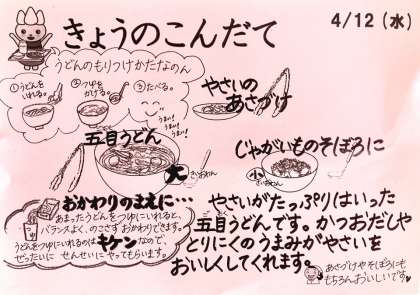 きょうのこんだて
4/12(水)
うどんのもりつけかたなのん
①うどんを
いれる。
②つゆを
かける。
③たべる。
うまい!
うまい!
うまい!
やさいの
あさづけ
五目うどん
大
きいおわん
じゃがいものそぼろに
小
さいおわん
おかわりのまえに…
あまったうどんをつゆにいれると、
バランスよく、のこさず おかわりできます。
うどんをつゆにいれるのはキケンなので、
ぜったいに せんせいに やってもらいます。
やさいがたっぷりはいった
五目うどんです。かつおだしや
とりにくのうまみがやさいを
おいしくしてくれます。
あさづけやそぼろにも
もちろんおいしいです♡